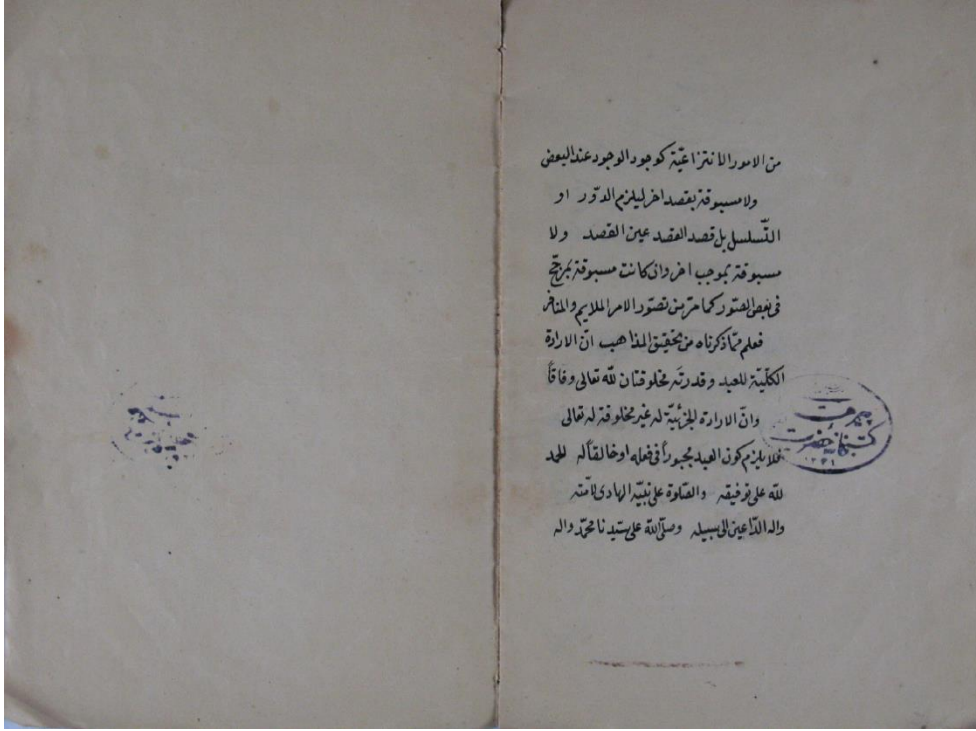 من الامور الانتزاعيّة كوجود الوجود عند البعض
ولا مسبوقة بقصد اخر ليلزم الدّور او
التّسلسل بل قصد القصد عين القصد ولا
مسبوقة بموجب اخر وان كانت مسبوقة بمرجّح
فى بعض الصّور كما مرّ من تصوّر الامر الملايم والمنافر
فعلم ممّا ذكرناه من تحقيق المذاهب انّ الارادة
الكلّيّة للعبد وقدرته مخلوقتان للّه تعالى وفاقاً
وانّ الارادة الجزئيّة له غير مخلوقة له تعالى
فلا يلزم كون العبد مجبوراً فى فعله او خالقاً له للحمد
للّه على توفيقه والصّلوة على نبيّه الهادى لامّته
واله الدّاعين الى سبيله وصلّى اللّه على سيّدنا محمّد واله
كتبخانه حضرت